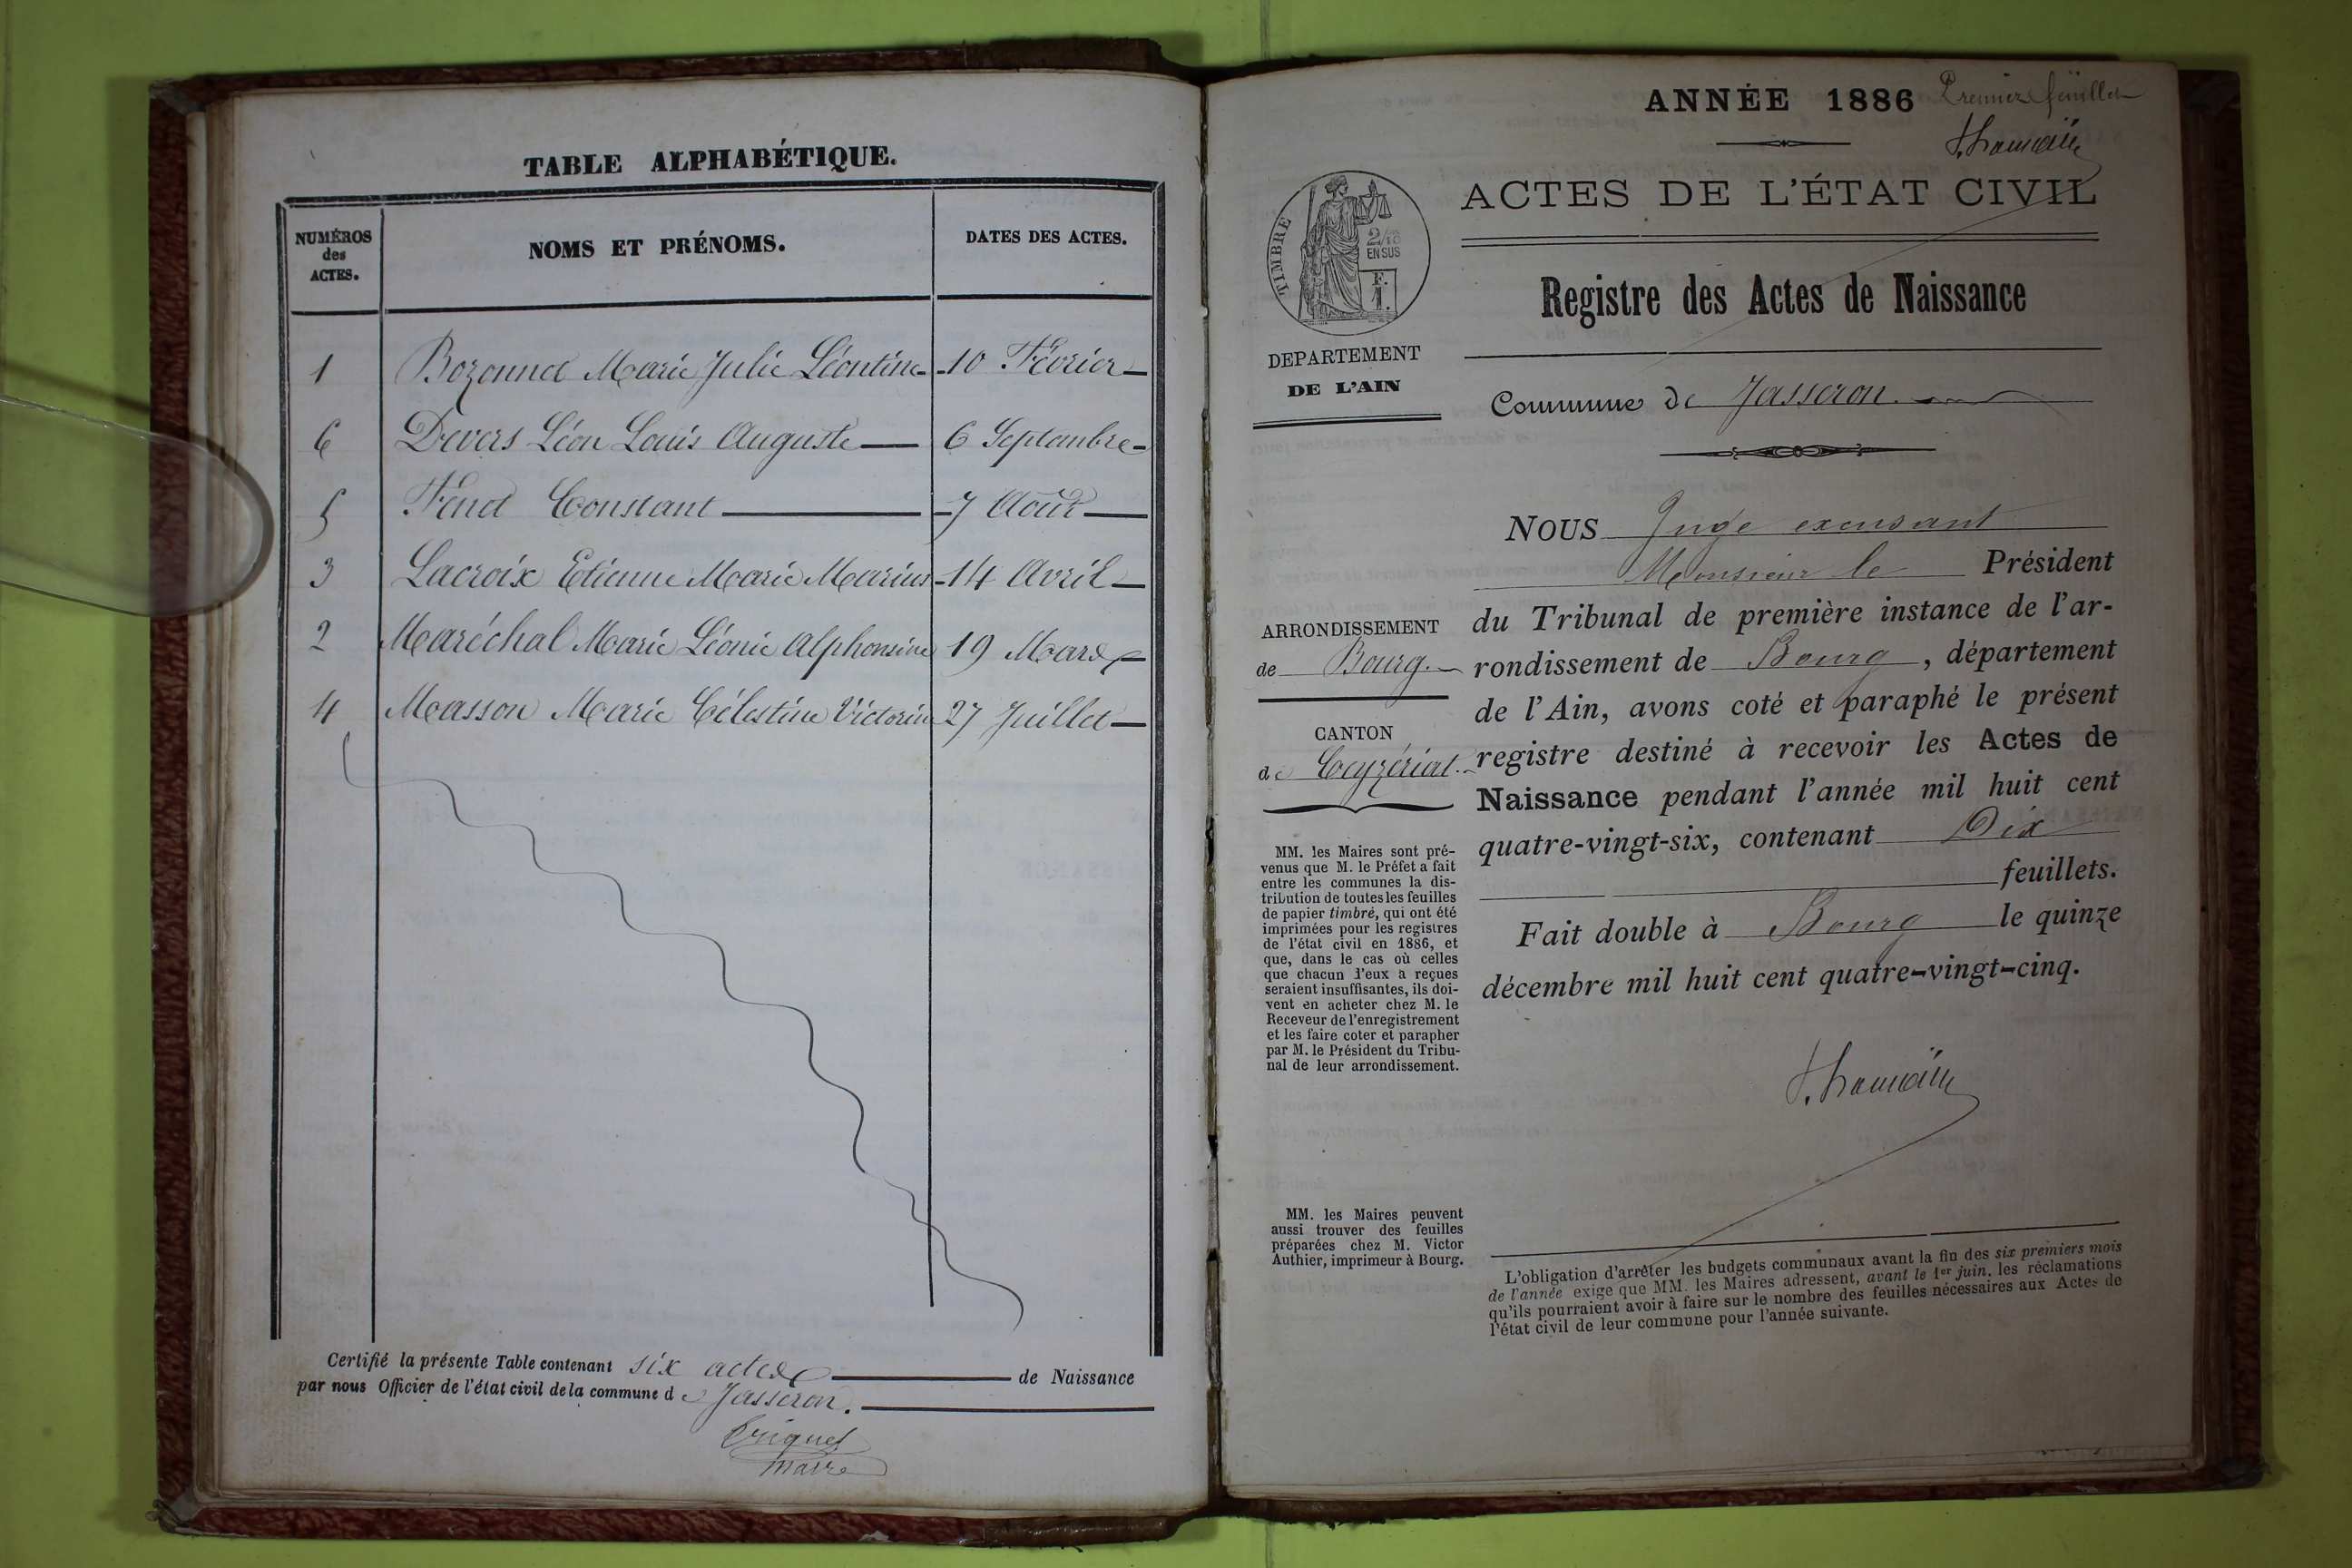 TABLE ALPHABÉTIQUE.
NUMÉROS des ACTES.
NOMS ET PRÉNOMS.
DATES DES ACTES.
1 Bozonnet Marie Julie Léontine 10 Février
6 Devers Léon Louis Auguste 6 Septembre
5 Fenet Constant 7 Août
3 Lacroix Etienne Marie Marius 14 Avril
2 Maréchal Marie Léonie Alphonsine 19 Mars
4 Masson Marie Célestine Victorine 27 Juillet
Certifié la présente Table contenant six actes de Naissance
par nous Officier de l'état civil de la commune de Jasseron.
maire
ANNÉE 1886 Premier feuillet
TIMBRE
2/10
EN SUS
F.
1.
ACTES DE L'ÉTAT CIVIL
Registre des Actes de Naissance
DEPARTEMENT
DE L'AIN
Commune de Jasseron.
NOUS Juge excusant
Monsieur le Président
du Tribunal de première instance de l'ar-
rondissement de Bourg, département
de l'Ain, avons coté et paraphé le présent
registre destiné à recevoir les Actes de
Naissance pendant l'année mil huit cent
quatre-vingt-six, contenant Dix
feuillets.
Fait double à Bourg le quinze
décembre mil huit cent quatre-vingt-cinq.
ARRONDISSEMENT
de Bourg.
CANTON
de Ceyzériat.
MM. les Maires sont pré-
venus que M. le Préfet a fait
entre les communes la dis-
tribution de toutes les feuilles
de papier timbré, qui ont été
imprimées pour les registres
de l'état civil en 1886, et
que, dans le cas où celles
que chacun d'eux a reçues
seraient insuffisantes, ils doi-
vent en acheter chez M. le
Receveur de l'enregistrement
et les faire coter et parapher
par M. le Président du Tribu-
nal de leur arrondissement.
MM. les Maires peuvent
aussi trouver des feuilles
préparées chez M. Victor
Authier, imprimeur à Bourg.
L'obligation d'arrêter les budgets communaux avant la fin des six premiers mois
de l'année exige que MM. les Maires adressent, avant le 1er juin, les réclamations
qu'ils pourraient avoir à faire sur le nombre des feuilles nécessaires aux Actes de
l'état civil de leur commune pour l'année suivante.